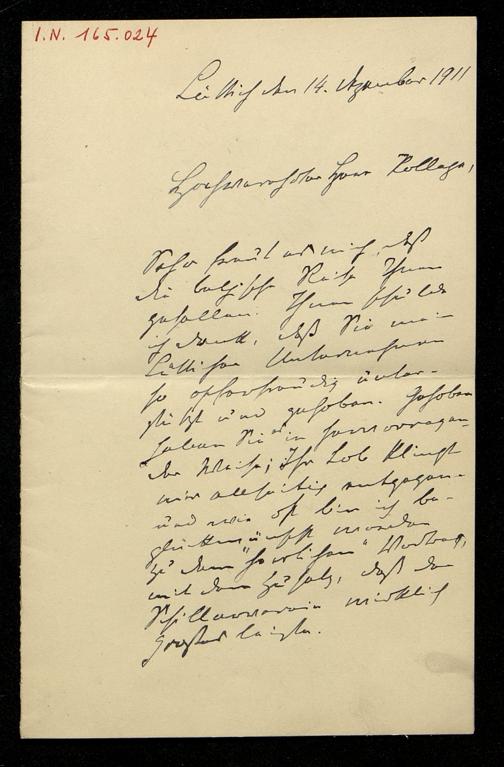 I.N. 165.024
Lüttich den 14. Dezember 1911
Hochverehrter Herr Kollege,
Sehr freut es mich, daß
die belgische Reise Ihnen
gefallen. Ihnen schulde
ich Dank, daß Sie mein
Lütticher Unternehmen
so opferfreudig unter-
stützt und gehoben. Gehoben
haben Sie es in hervorragen-
der Weise; Ihr Lob klingt
mir allseitig entgegen
und wie oft bin ich be-
glückwünscht worden
zu dem "herrlichen" Vortrag,
mit dem Zusatz, daß der
Schillerverein wirklich
Großes leiste.